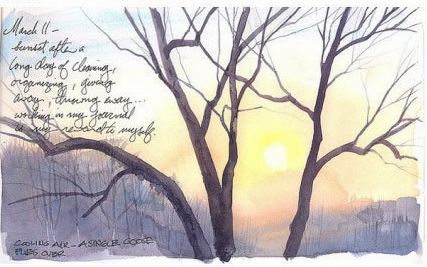 March 11 –
Sunset after a
long day of cleaning,
organizing, giving
away, throwing away...
working in my journal
is my reward to myself.
COOLING AIR – A SINGLE GOOSE
FLIES OVER